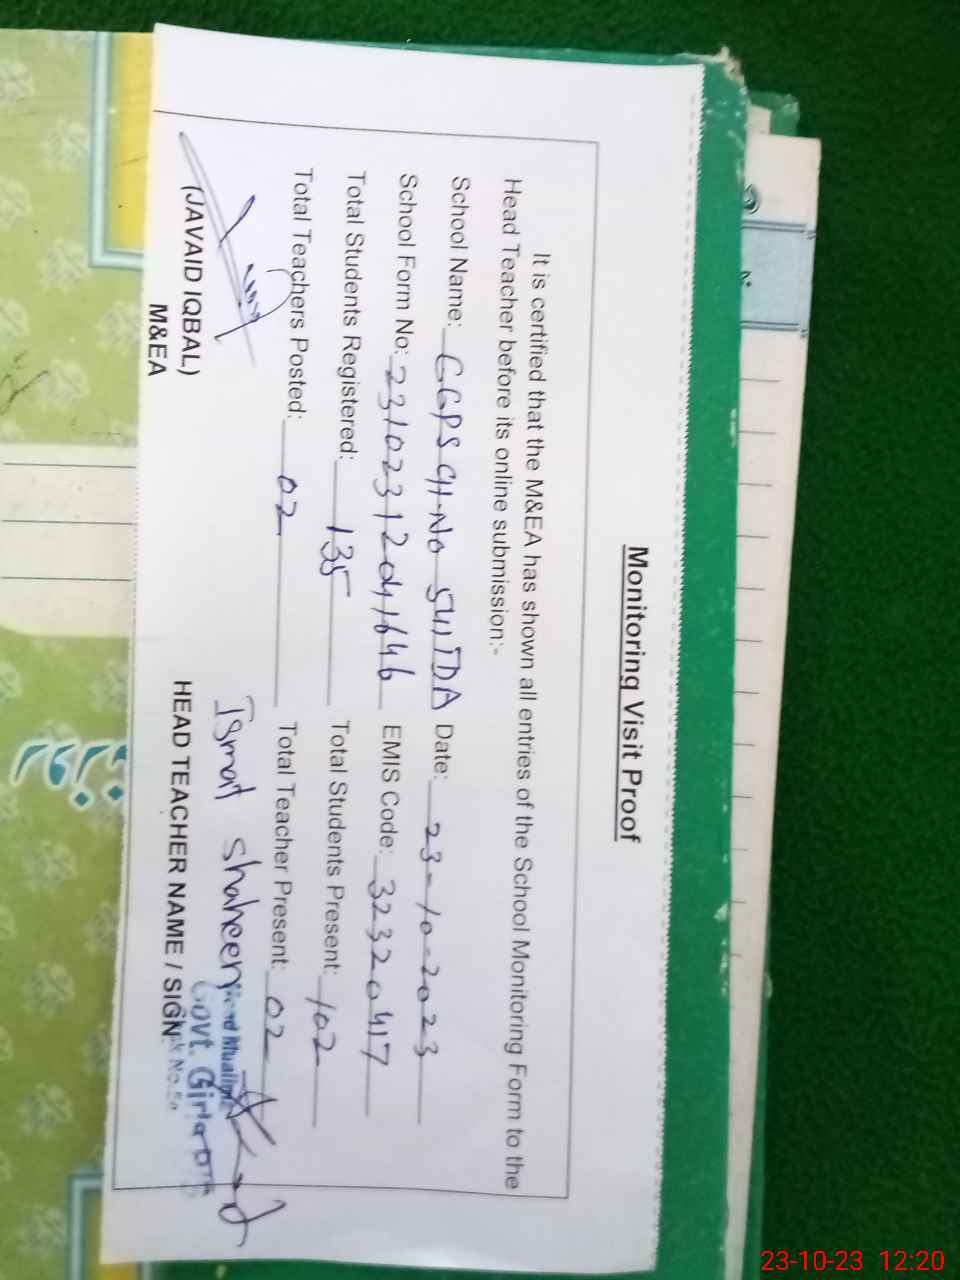 Monitoring Visit Proof
It is certified that the M&EA has shown all entries of the School Monitoring Form to the
Head Teacher before its online submission:-
School Name: GGPS CH.No 541TDA Date: 23-10-2023
School Form No: 23102312041646 EMIS Code: 32320417
Total Students Registered: 135 Total Students Present: 102
Total Teachers Posted: 02 Total Teacher Present: 02
Ismat shaheen
(JAVAID IQBAL)
M&EA
HEAD TEACHER NAME / SIGN
Govt. Girls
23-10-23 12:20